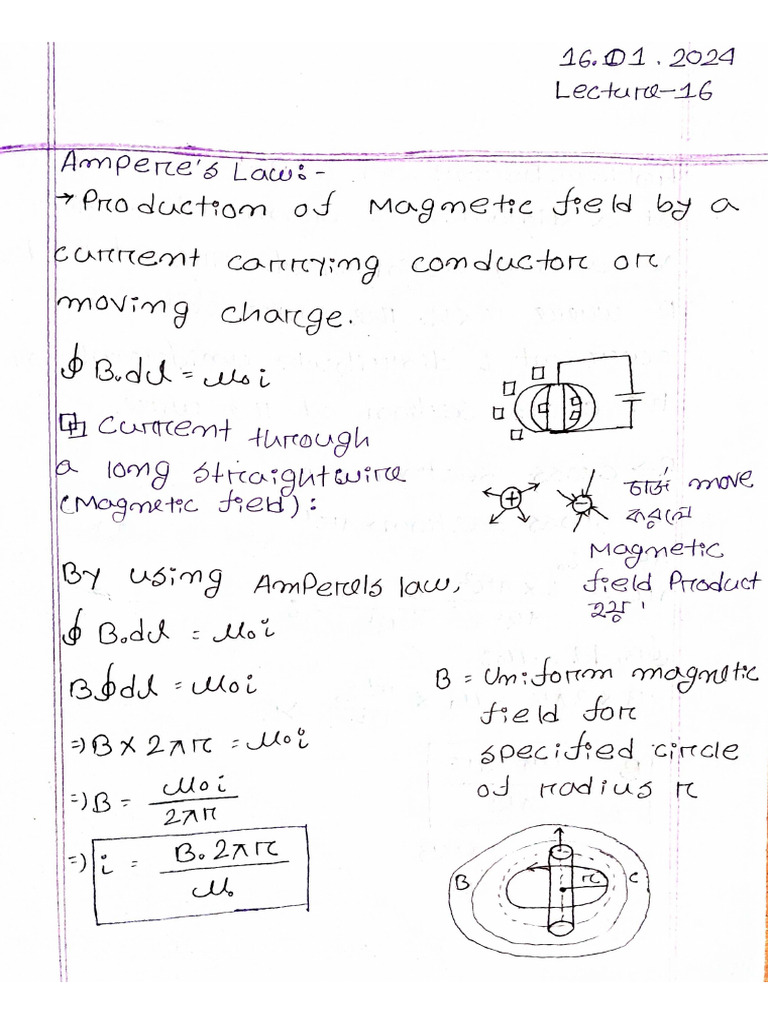 16.01.2024
Lecture-16
Ampere's Law:-
→ Production of Magnetic field by a
current carrying conductor or
moving charge.
∮ B.dl = μ₀i
Current through
a long straight wire
(Magnetic field):
+ -
চার্জ move
করলে
Magnetic
field Product
হয়।
By using Ampere's law,
∮ B.dl = μ₀i
B∮dl = μ₀i
⇒ B × 2πr = μ₀i
⇒ B = μ₀i / 2πr
⇒ i = B.2πr / μ₀
B = Uniform magnetic
field for
specified circle
of radius r
B r C